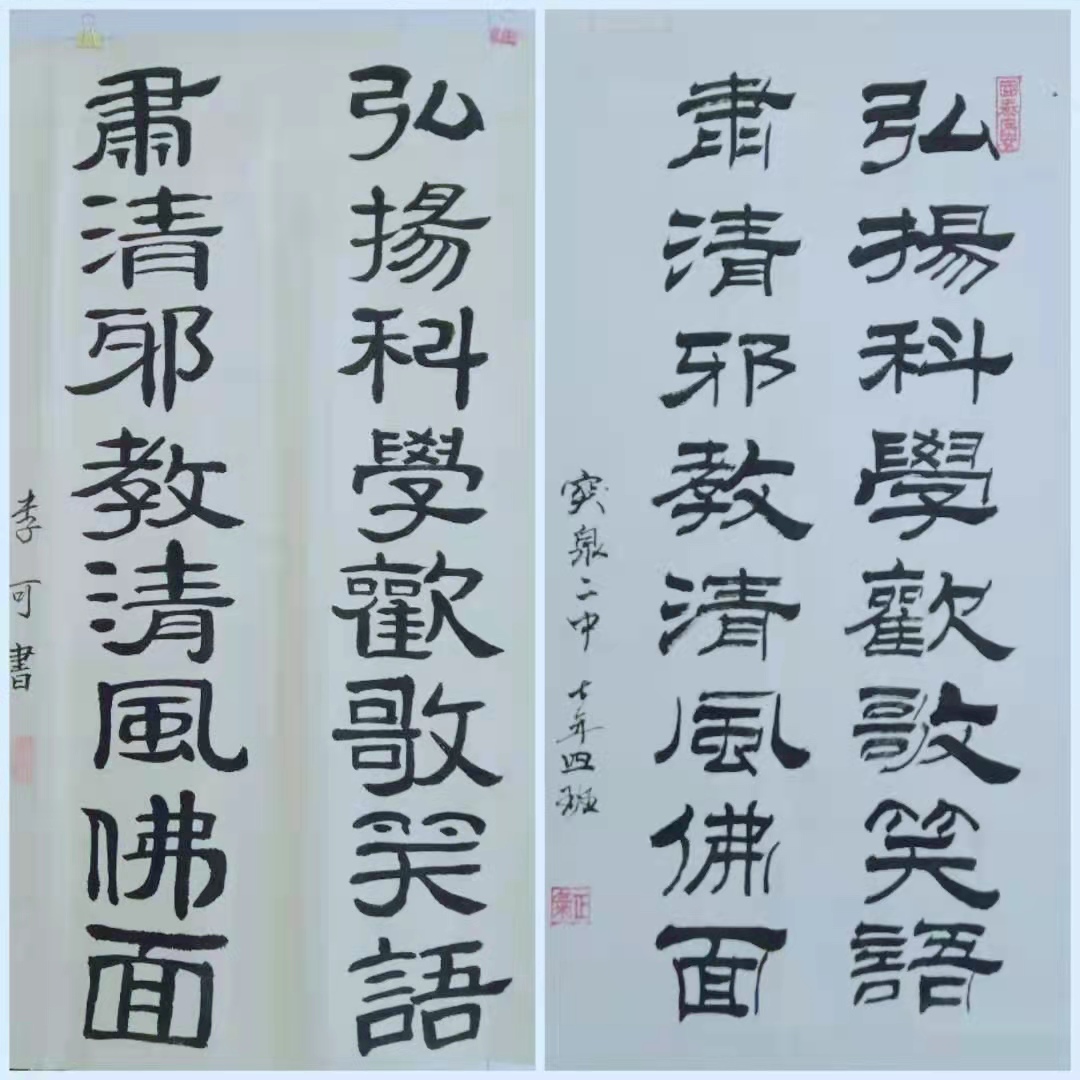 弘揚科學歡歌笑語
肅清邪教清風佛面
李可書
弘揚科學歡歌笑語
肅清邪教清風佛面
突泉二中 七年四班